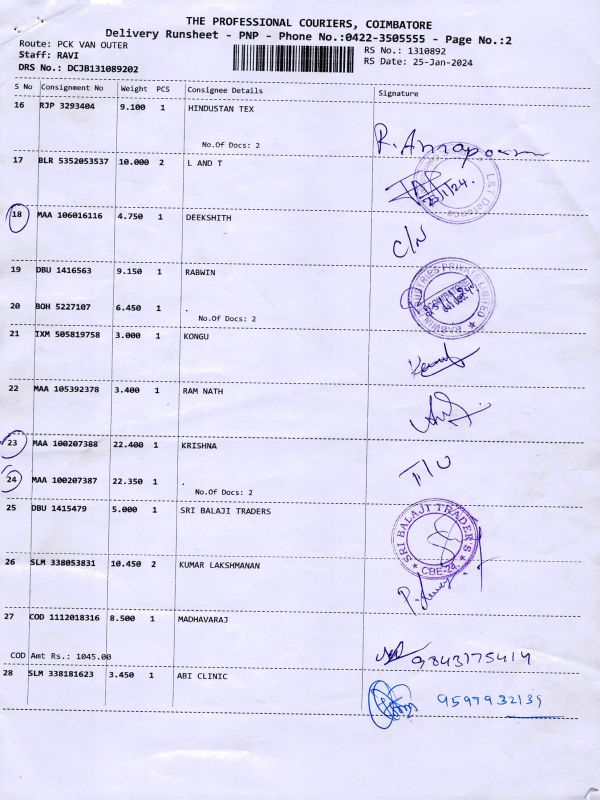 THE PROFESSIONAL COURIERS, COIMBATORE
Delivery Runsheet - PNP - Phone No.:0422-3505555 - Page No.:2
Route: PCK VAN OUTER
Staff: RAVI
DRS No.: DCJB131089202
RS No.: 1310892
RS Date: 25-Jan-2024
S No Consignment No Weight PCS Consignee Details Signature
16 RJP 3293404 9.100 1 HINDUSTAN TEX
No.Of Docs: 2
17 BLR 5352053537 10.000 2 L AND T
18 MAA 106016116 4.750 1 DEEKSHITH
C/N
19 DBU 1416563 9.150 1 RABWIN
20 BOH 5227107 6.450 1 .
No.Of Docs: 2
21 IXM 505819758 3.000 1 KONGU
22 MAA 105392378 3.400 1 RAM NATH
23 MAA 100207388 22.400 1 KRISHNA
24 MAA 100207387 22.350 1 .
No.Of Docs: 2
25 DBU 1415479 5.000 1 SRI BALAJI TRADERS
SRI BALAJI TRADER'S
CBE-24.
26 SLM 338053831 10.450 2 KUMAR LAKSHMANAN
27 COD 1112018316 8.500 1 MADHAVARAJ
COD Amt Rs.: 1045.00
9843175414
28 SLM 338181623 3.450 1 ABI CLINIC
9597932139